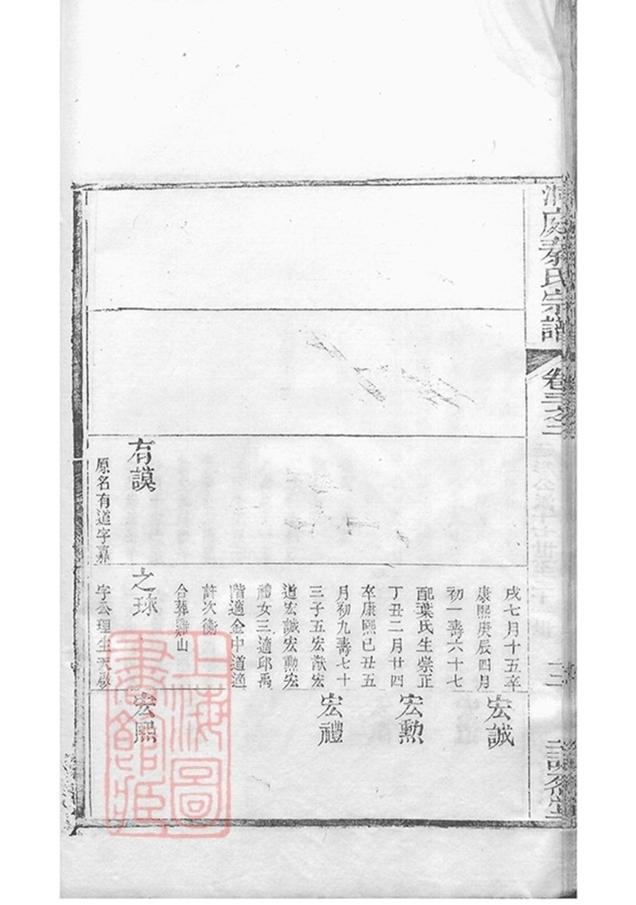 洞庭秦氏宗譜
卷三之二
三
戌七月十五卒
康熙庚辰四月
初一壽六十七
配葉氏生崇正
丁丑二月廿四
卒康熙己丑五
月初九壽七十
三子五宏猷宏
道宏誠宏勲宏
禮女三適邱禹
階適金中道適
許次衡
合葬雞山
宏誠
宏勲
宏禮
有謨
原名有道字嘉
之球
字公理生天啟
宏熙
上海圖
書館藏